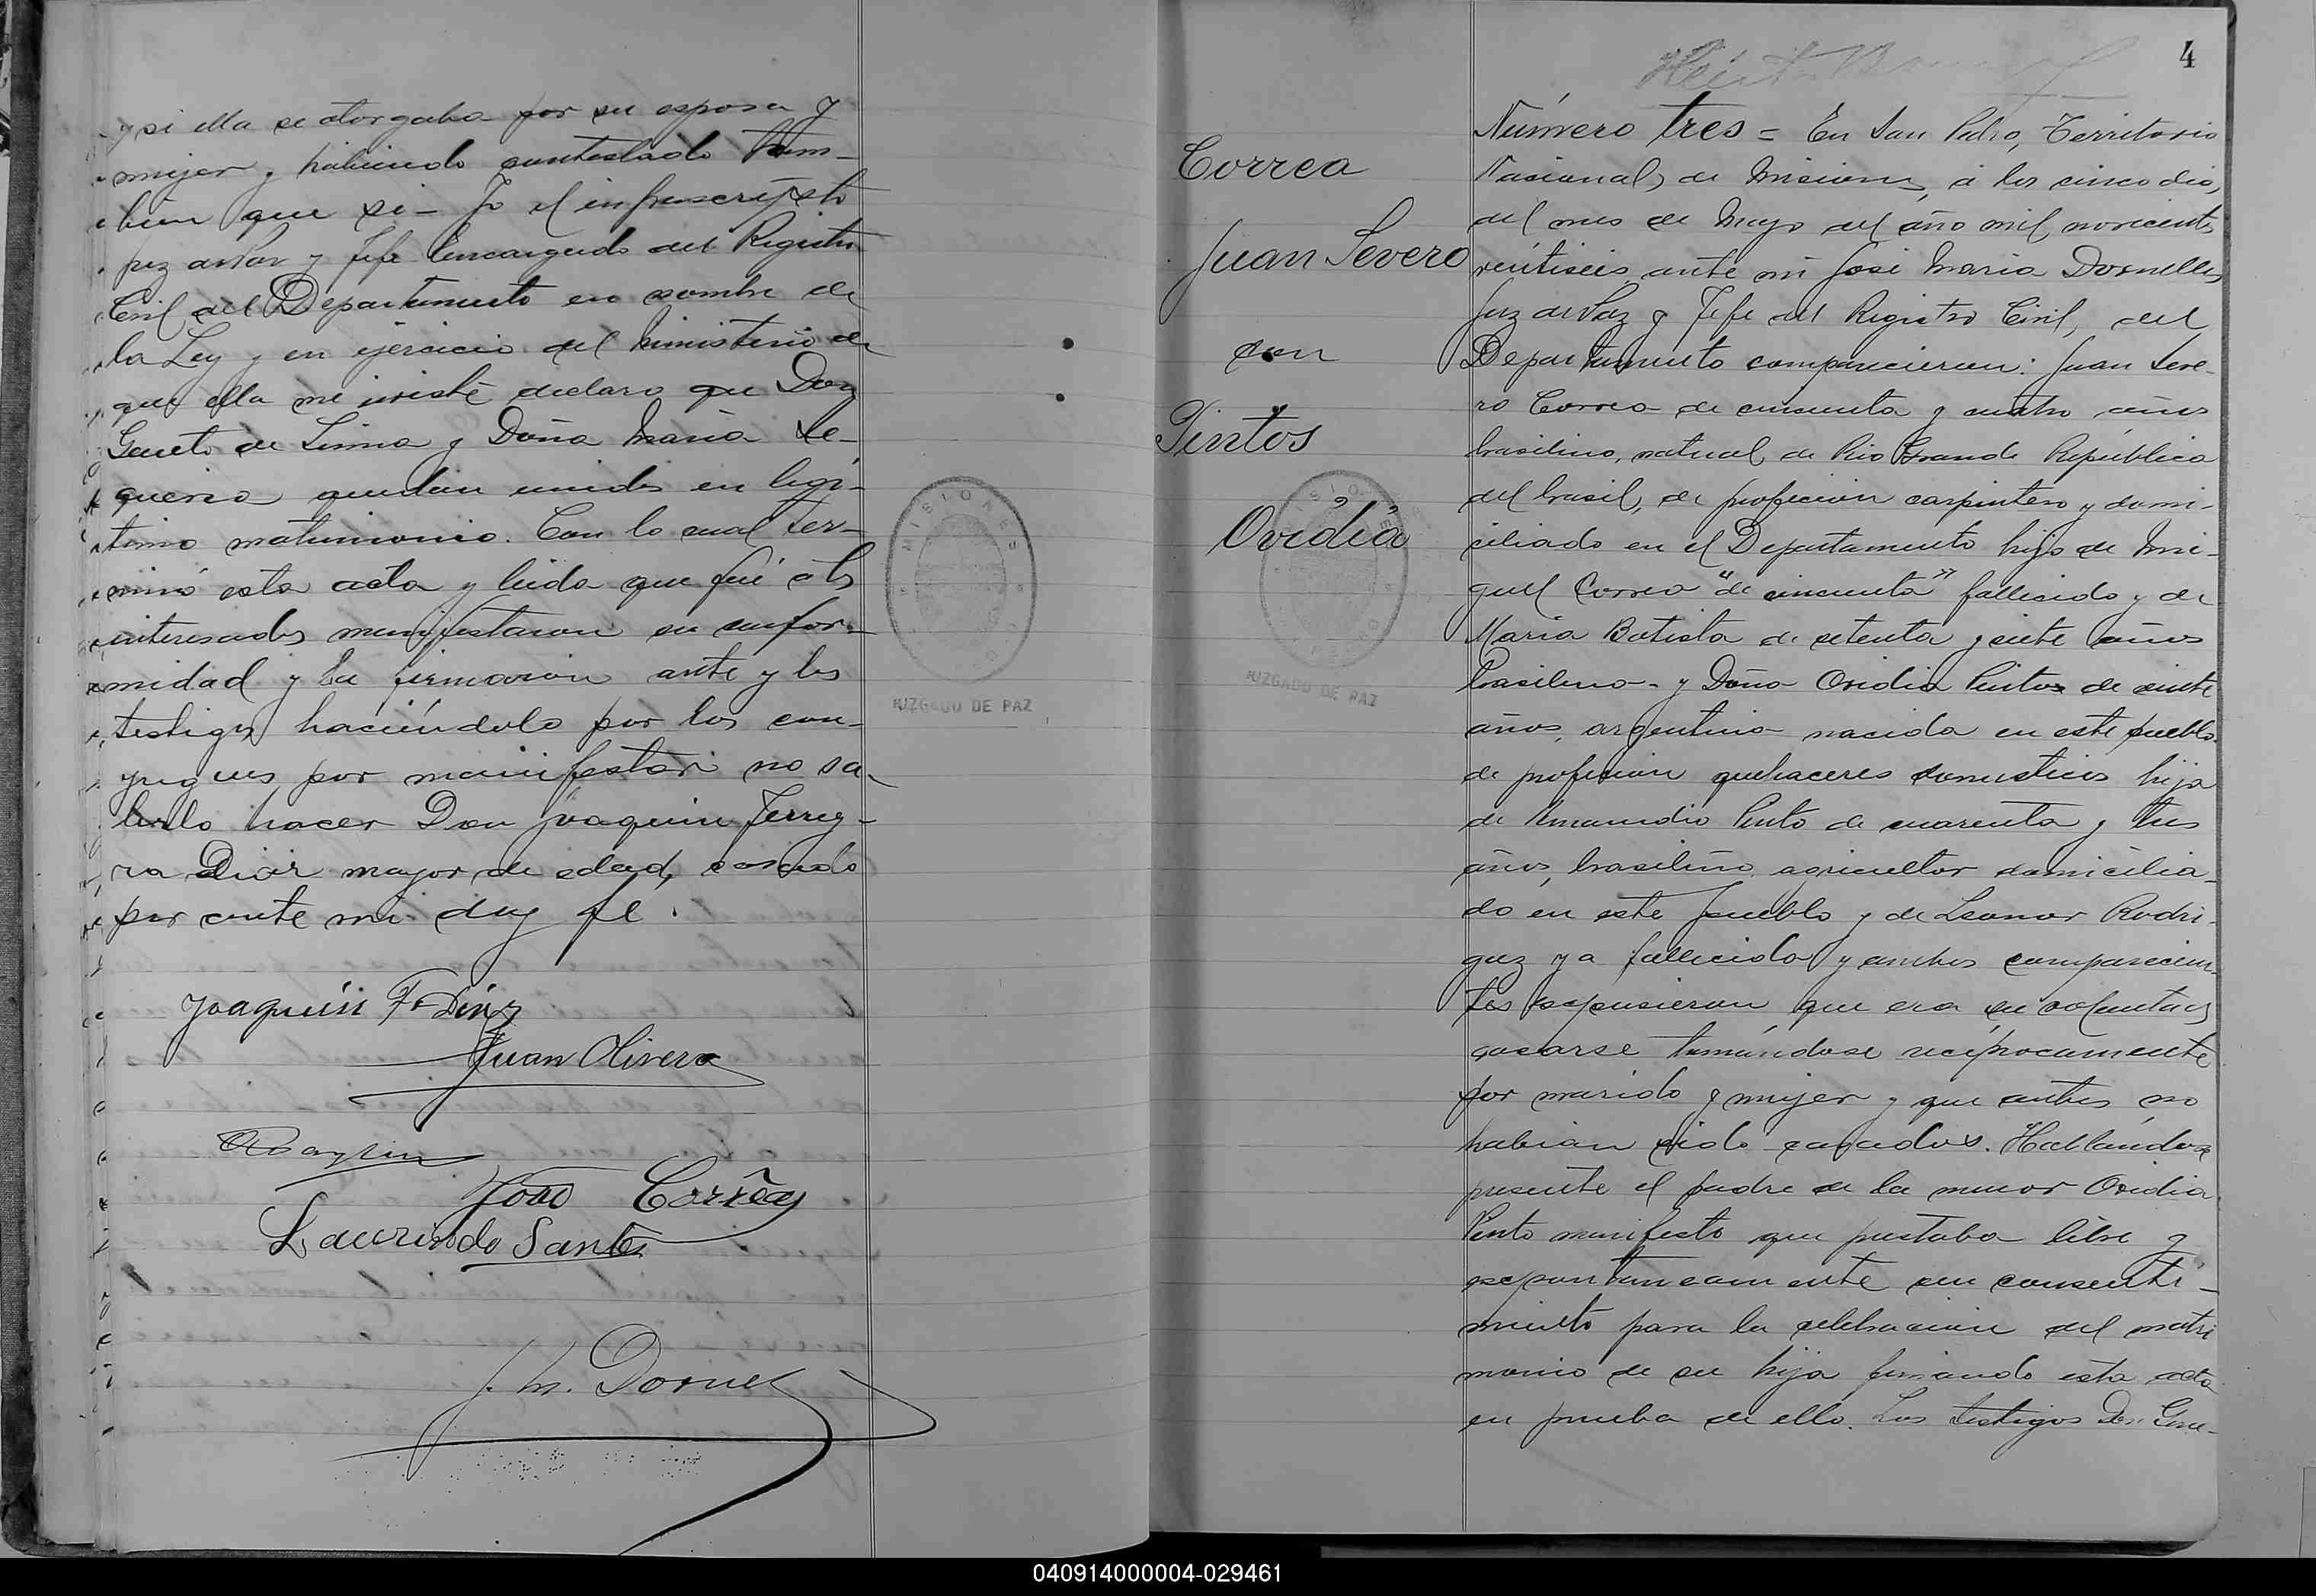 y si ella se otorgaba por su esposa y
mujer y habiendo contestado tam-
bien que si - Yo el infrascripto
Juez de Paz y Jefe Encargado del Registro
Civil del Departamento en nombre de
la Ley y en ejercicio del ministerio de
que ella me inviste declaro que Don
de Lima y Doña María Se-
queira quedan unidos en legi-
timo matrimonio. Con lo cual ter-
minó esta acta y leida que fué á los
interesados manifestaron su confor-
midad y la firmaron ante y los
testigos haciéndolo por los con-
yugues por manifestar no sa-
berlo hacer Don Joaquin Ferrey-
ra Diaz mayor de edad, casado
por ante mi doy fe.
Joaquín F. Dinz
Juan Olivera
João Corrêa
Laurindo Santos
J. M. Dornel
MISIONES
JUZGADO DE PAZ
4
Correa
Juan Severo
con
Pintos
Ovidia
MISIONES
JUZGADO DE PAZ
Número tres = En San Pedro, Territorio
Nacional, de Misiones, á los cinco dias,
del mes de Mayo del año mil novecientos
veintiseis, ante mi José Maria Dornelles
Juez de Paz y Jefe del Registro Civil, del
Departamento comparecieron: Juan Seve-
ro Correa de cincuenta y cuatro años
brasilino, natural de Rio Grande República
del brasil, de profecion carpintero y domi-
ciliado en el Departamento hijo de Mi-
guel Correa "de cincuenta" fallecido y de
María Batista de setenta y siete años
brasilina - y Doña Ovidia Pintos de veinte
años, argentina nacida en este pueblo
de profesion quehaceres domesticos hija
de Pinto de cuarenta y tres
años, brasileño agricultor domicilia-
do en este pueblo y de Leonor Rodri-
guez ya fallecida y ambos comparecien-
tes expusieron que era su voluntad
casarse tomándose recíprocamente
por marido y mujer y que antes no
habian sido casados. Hallandose
presente el padre de la menor Ovidia
Pinto manifesto que prestaba libre y
espontaneamente su consenti-
miento para la celebracion del matri
monio de su hija firmando esta acta
en prueba de ello. Los testigos Don
040914000004-029461